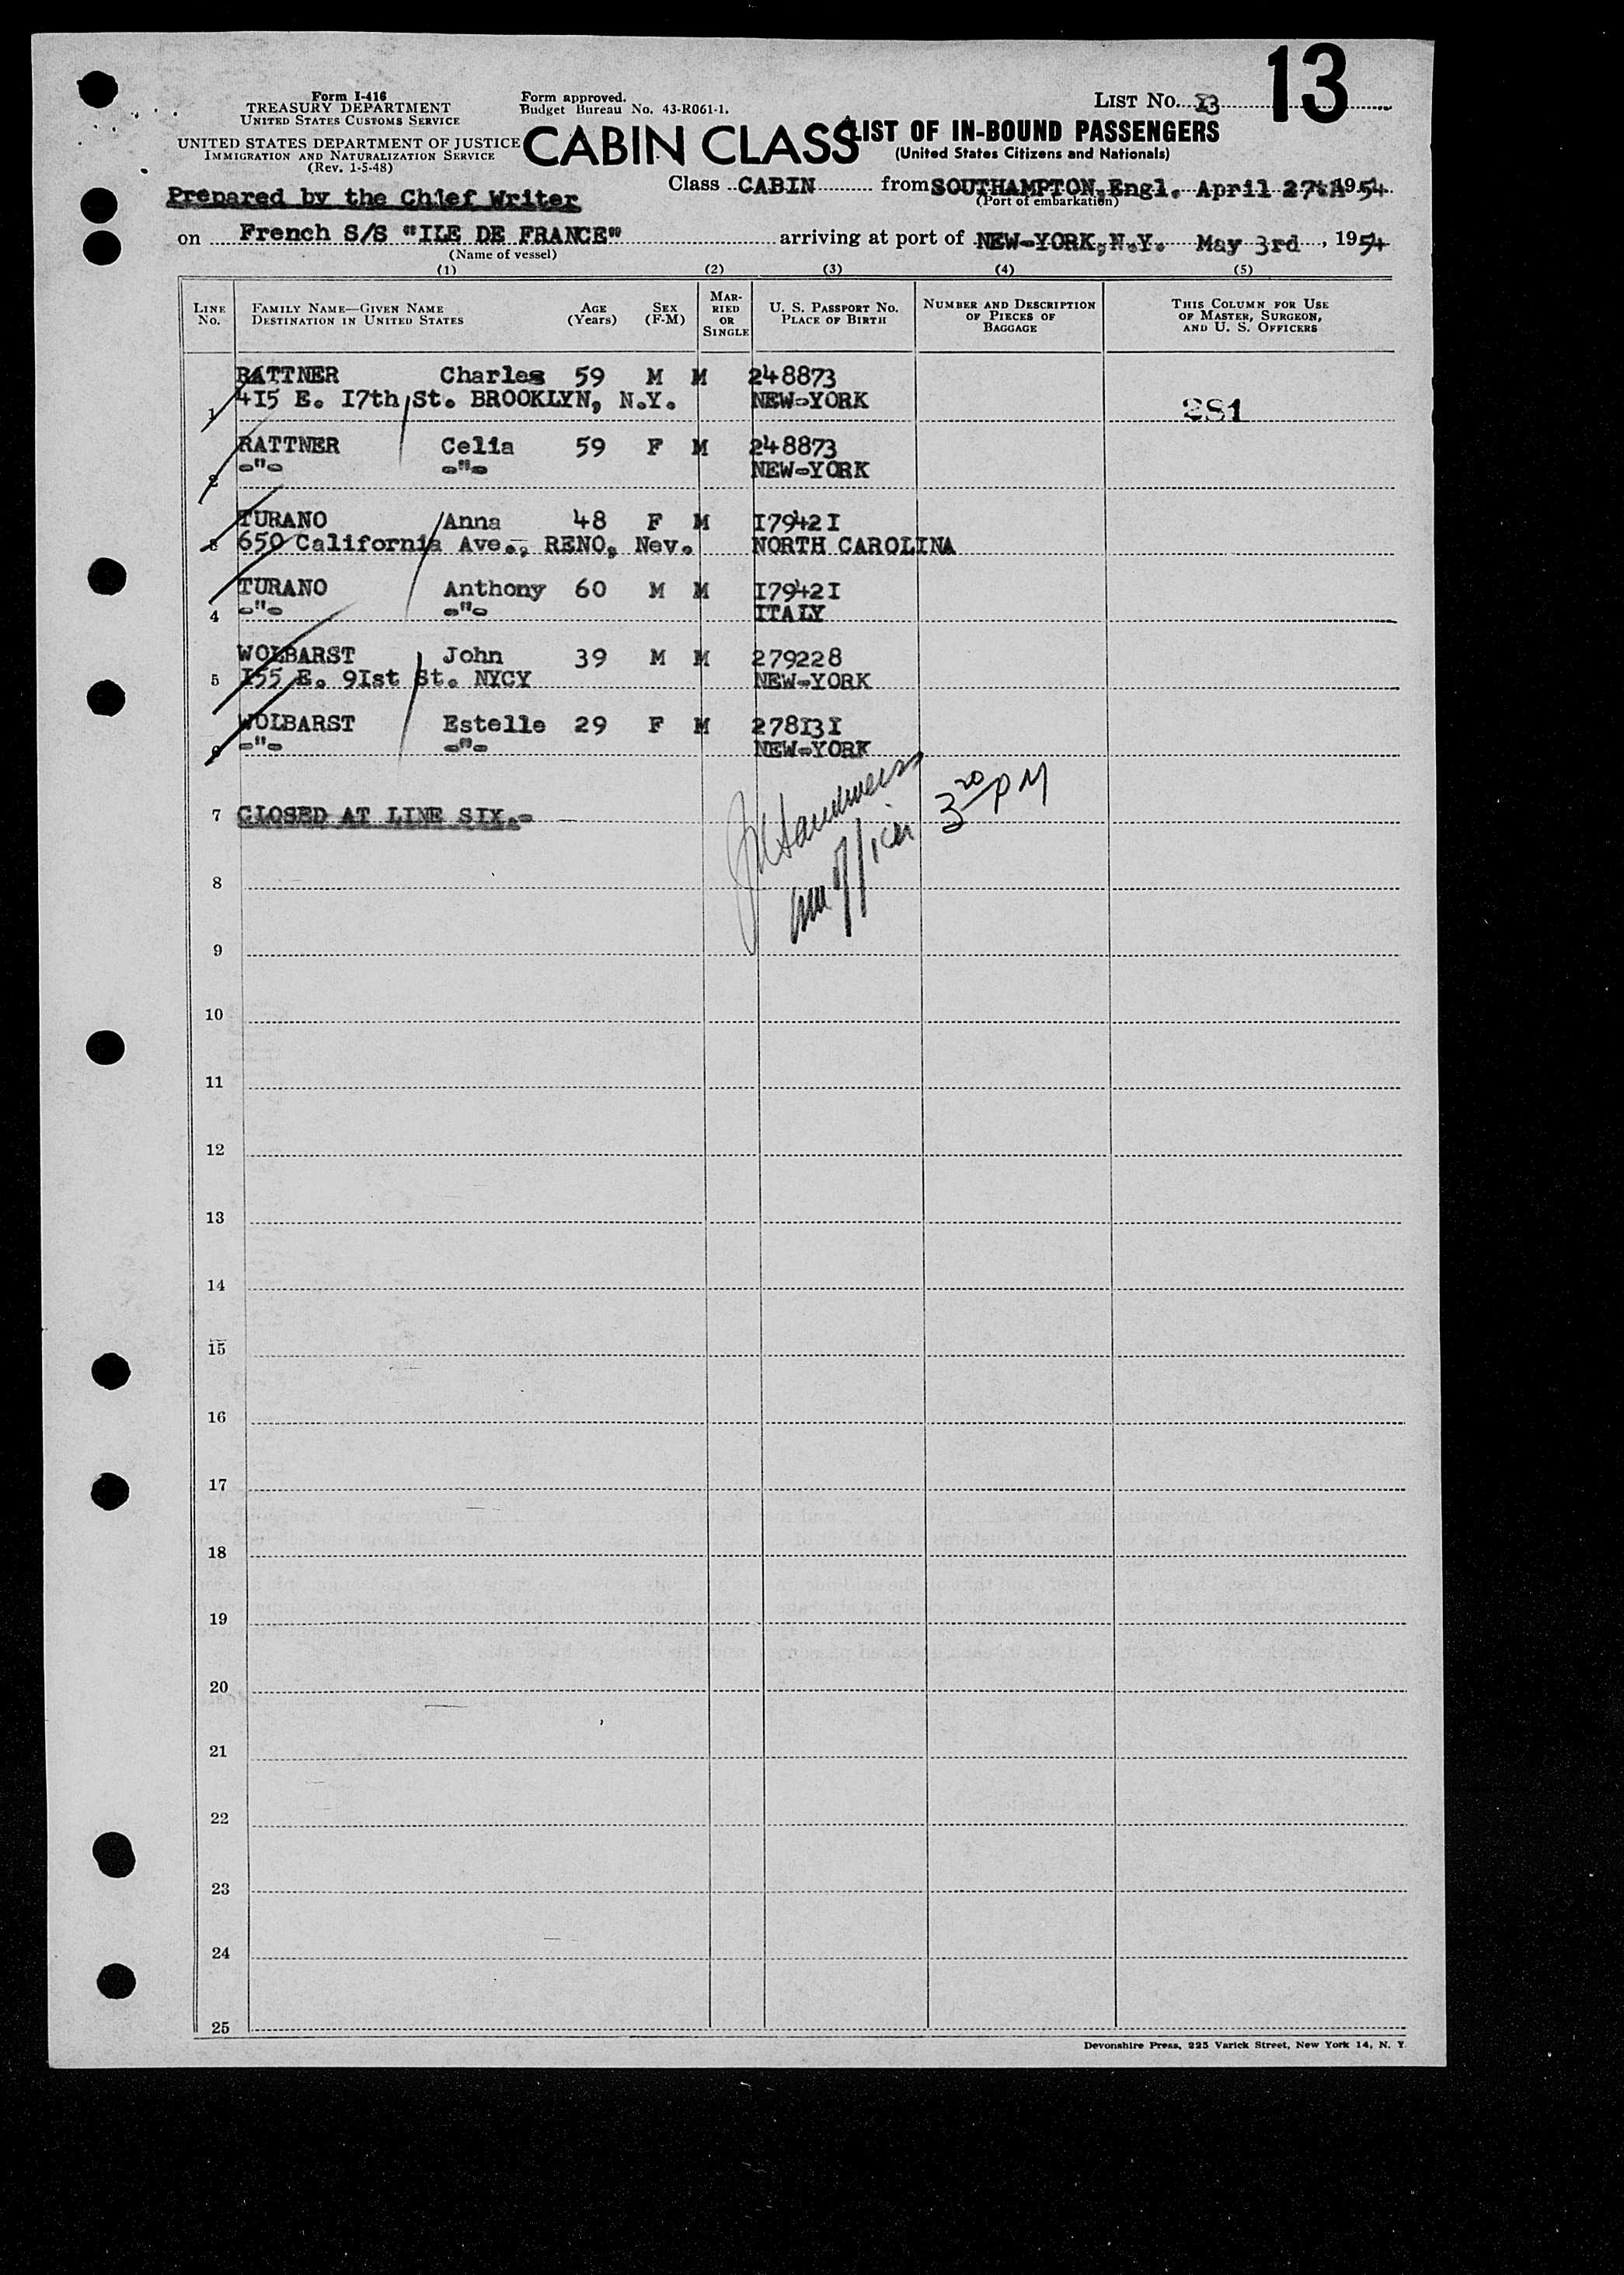 13
Form I-416
TREASURY DEPARTMENT
UNITED STATES CUSTOMS SERVICE
UNITED STATES DEPARTMENT OF JUSTICE
IMMIGRATION AND NATURALIZATION SERVICE
(Rev. 1-5-48)
Form approved.
Budget Bureau No. 43-R061-1.
LIST NO. 13
CABIN CLASS
LIST OF IN-BOUND PASSENGERS
(United States Citizens and Nationals)
Prepared by the Chief Writer
Class CABIN from SOUTHAMPTON, Engl. April 27th 1954
(Port of embarkation)
on French S/S "ILE DE FRANCE" arriving at port of NEW-YORK, N.Y. May 3rd, 1954
(Name of vessel)
(1) (2) (3) (4) (5)
LINE NO.
FAMILY NAME—GIVEN NAME
DESTINATION IN UNITED STATES
AGE (Years)
SEX (F-M)
MARRIED OR SINGLE
U. S. PASSPORT NO.
PLACE OF BIRTH
NUMBER AND DESCRIPTION
OF PIECES OF
BAGGAGE
THIS COLUMN FOR USE
OF MASTER, SURGEON,
AND U. S. OFFICERS
RATTNER Charles 59 M M 248873
1 415 E. I7th St. BROOKLYN, N.Y. NEW-YORK 281
RATTNER Celia 59 F M 248873
2 -"- -"- NEW-YORK
TURANO Anna 48 F M I7942I
3 650 California Ave., RENO, Nev. NORTH CAROLINA
TURANO Anthony 60 M M I7942I
4 -"- -"- ITALY
WOLBARST John 39 M M 279228
5 I55 E. 9Ist St. NYCY NEW-YORK
WOLBARST Estelle 29 F M 278I3I
6 -"- -"- NEW-YORK
3 20 PM
7 CLOSED AT LINE SIX.-
8
9
10
11
12
13
14
15
16
17
18
19
20
21
22
23
24
25
Devonshire Press, 225 Varick Street, New York 14, N. Y.